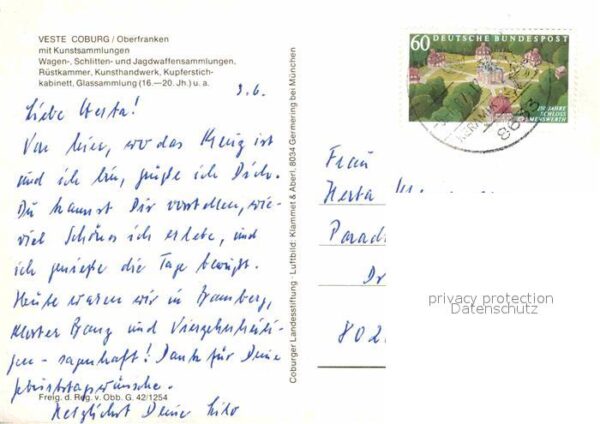 VESTE COBURG / Oberfranken
mit Kunstsammlungen
Wagen-, Schlitten- und Jagdwaffensammlungen,
Rüstkammer, Kunsthandwerk, Kupferstich-
kabinett, Glassammlung (16.—20. Jh.) u. a.
3.6.
Liebe Herta!
Von hier, wo das Kreuz ist
und ich bin, grüße ich Dich.
Du kannst Dir vorstellen, wie-
viel Schönes ich erlebe, und
ich genieße die Tage bewußt.
Heute waren wir in Bamberg,
Kloster Banz und Vierzehnheili-
gen - sagenhaft! Dank für Deine
Geburtstagswünsche.
Herzlichst Deine
Freig. d. Reg. v. Obb. G. 42/1254
Coburger Landesstiftung · Luftbild: Klammet & Aberl, 8034 Germering bei München
60 DEUTSCHE BUNDESPOST
250 JAHRE
SCHLOSS
CLEMENSWERTH
Frau
Herta
Parad
Dr
802
privacy protection
Datenschutz